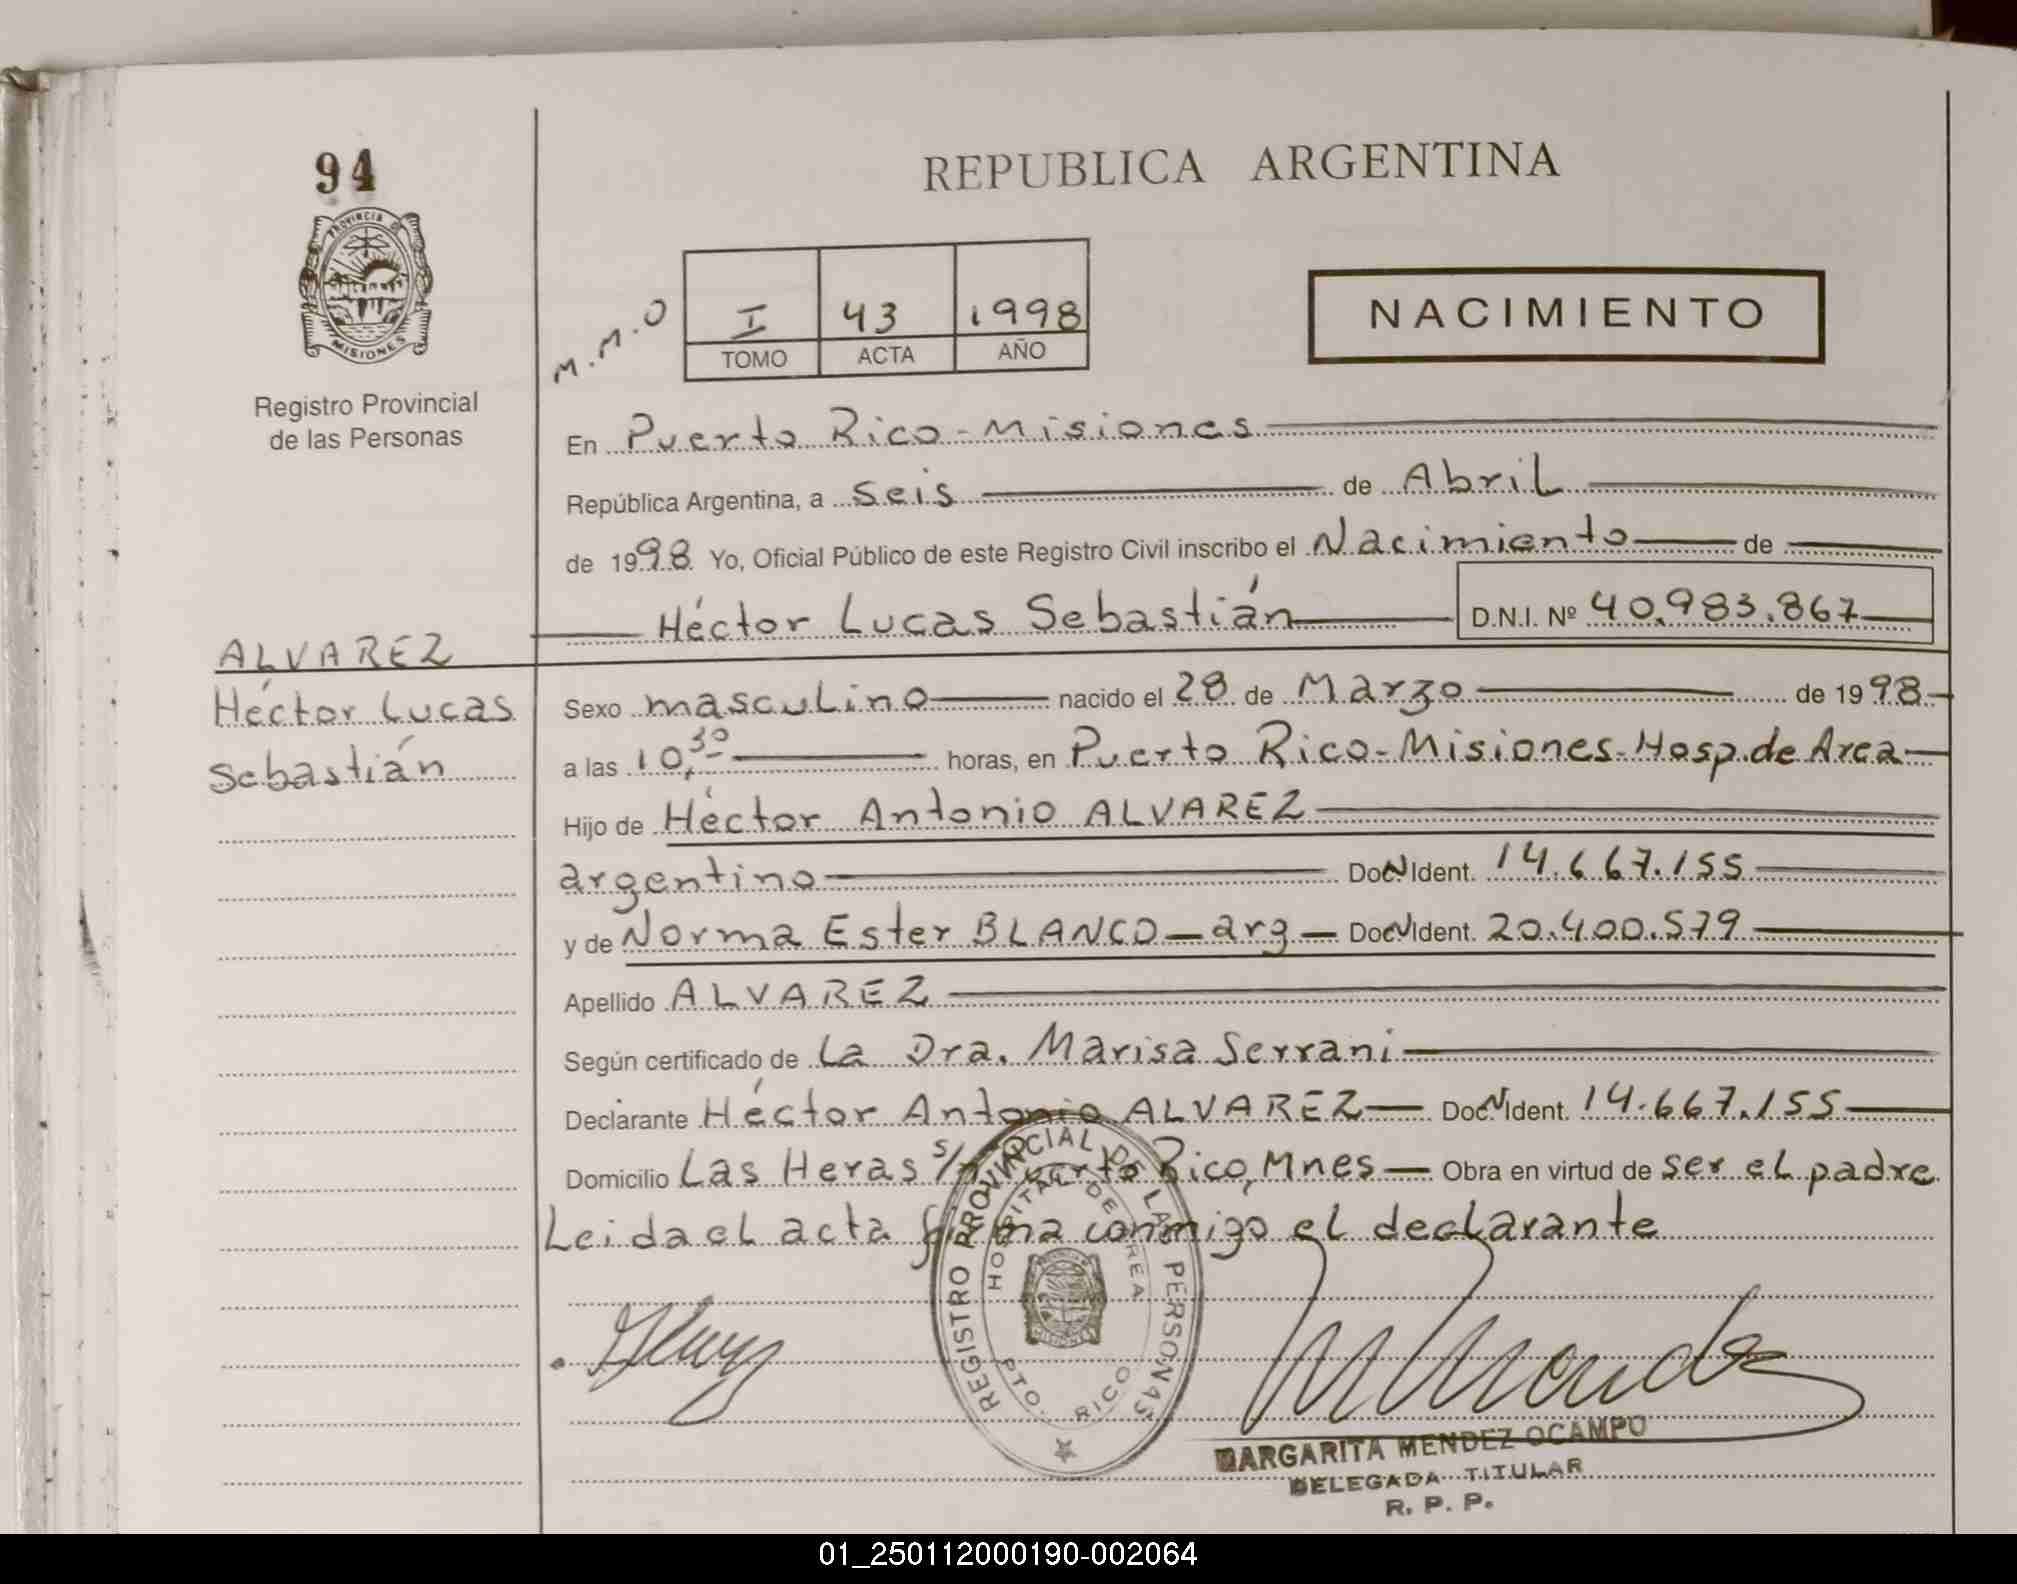 94
PROVINCIA DE
MISIONES
Registro Provincial
de las Personas
ALVAREZ
Héctor Lucas
Sebastián
REPUBLICA ARGENTINA
M.M.O
I 43 1998
TOMO ACTA AÑO
NACIMIENTO
En Puerto Rico - Misiones
República Argentina, a seis de Abril
de 1998 Yo, Oficial Público de este Registro Civil inscribo el Nacimiento de
Héctor Lucas Sebastián D.N.I. Nº 40.983.867
Sexo masculino nacido el 28 de Marzo de 1998
a las 10,30 horas, en Puerto Rico - Misiones - Hosp. de Area
Hijo de Héctor Antonio ALVAREZ
argentino Doc N Ident. 14.667.155
y de Norma Ester BLANCO - arg - Doc N Ident. 20.400.579
Apellido ALVAREZ
Según certificado de la Dra. Marisa Serrani
Declarante Héctor Antonio ALVAREZ Doc N Ident. 14.667.155
Domicilio Las Heras s/n Puerto Rico, Mnes - Obra en virtud de ser el padre
Leida el acta firma conmigo el declarante
REGISTRO PROVINCIAL DE LAS PERSONAS
HOSPITAL DE AREA
PTO. RICO
MARGARITA MENDEZ OCAMPO
DELEGADA TITULAR
R. P. P.
01_250112000190-002064